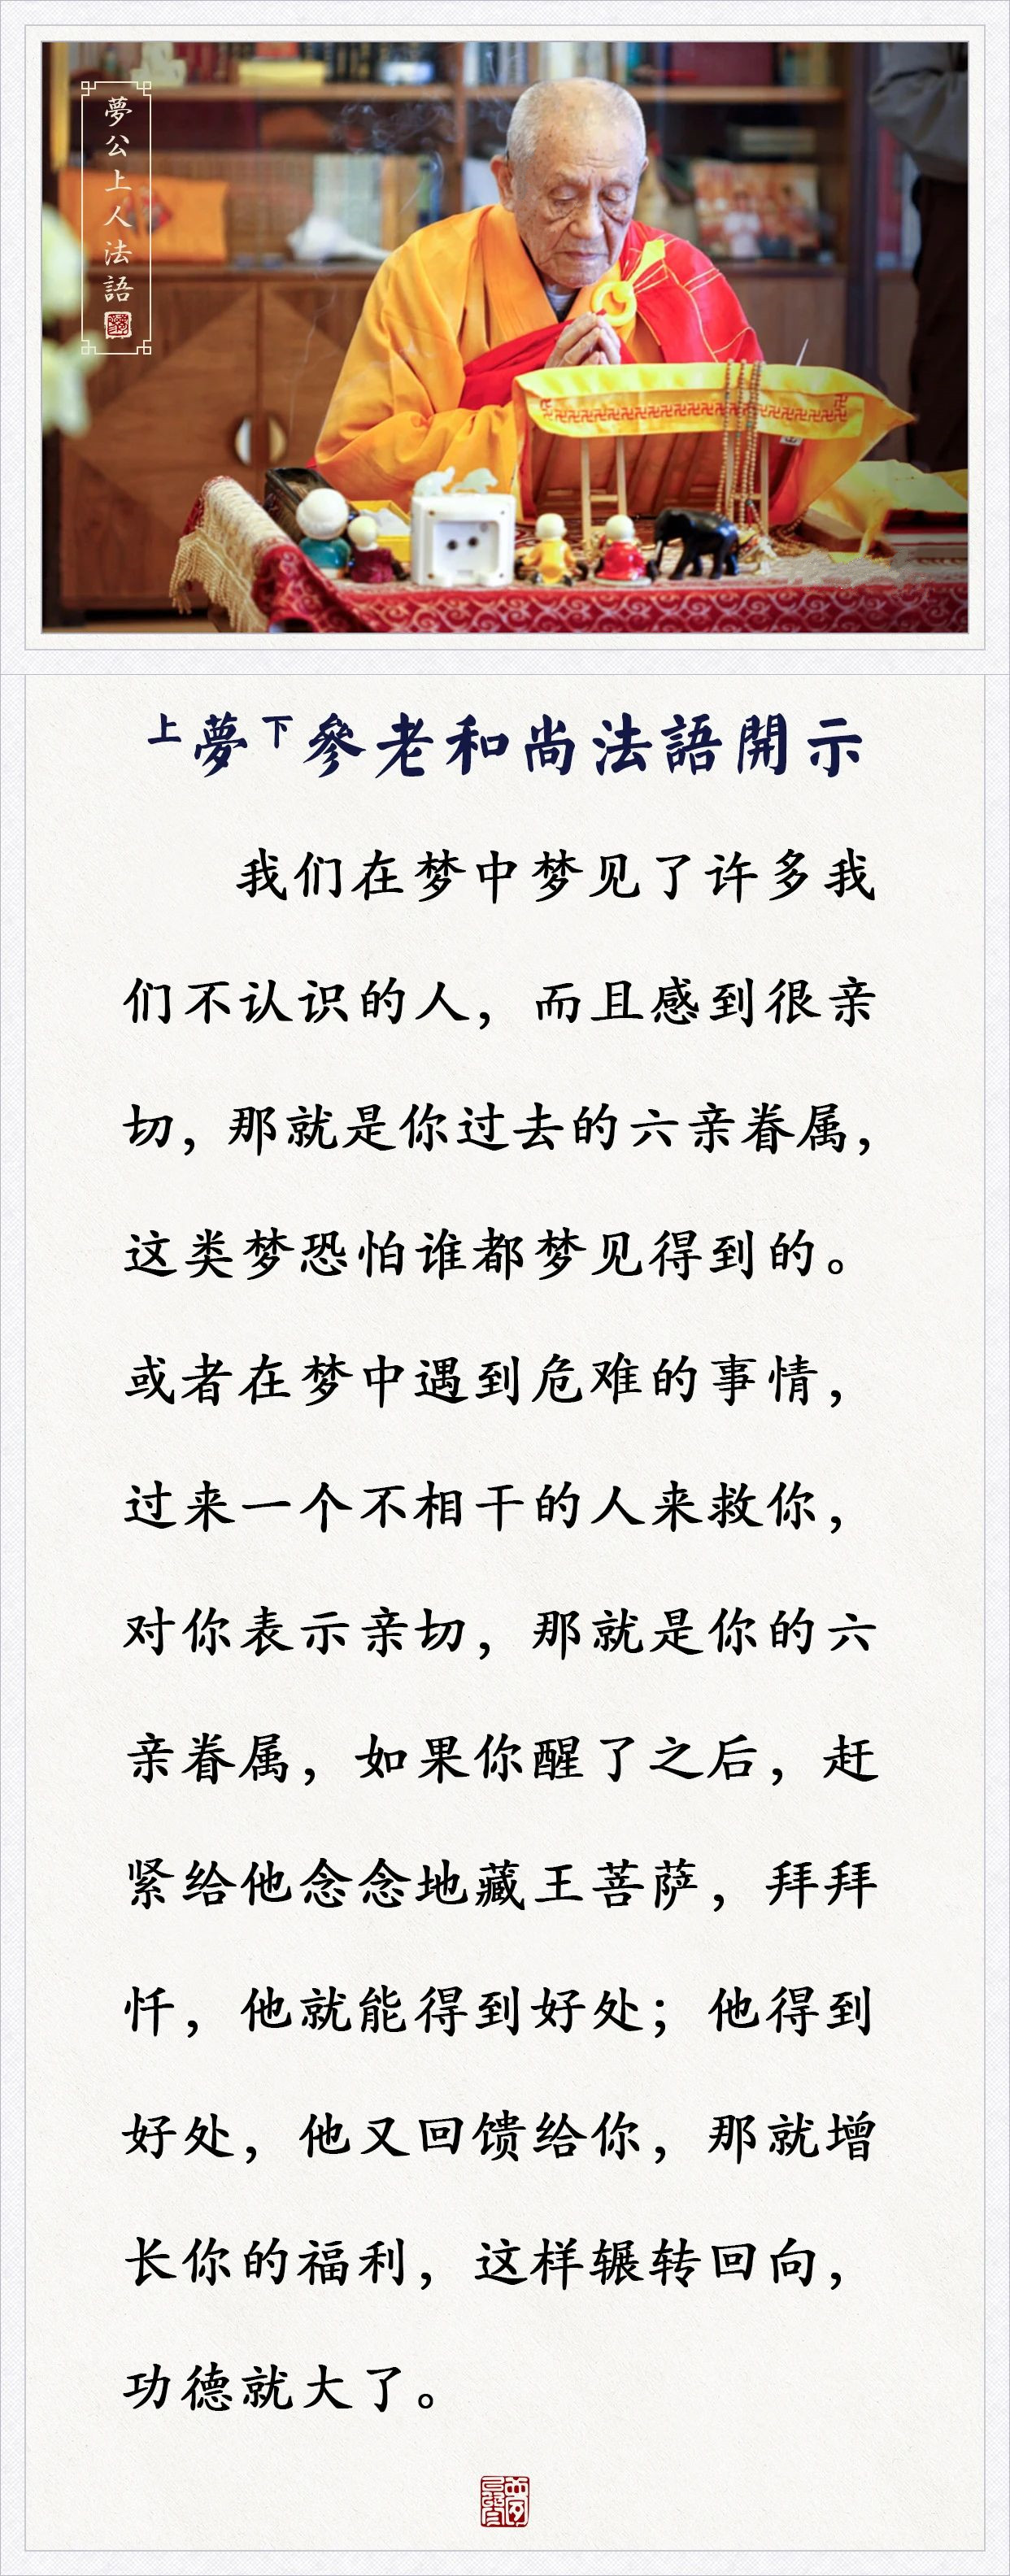 夢公上人法語
上夢下參老和尚法語開示
我们在梦中梦见了许多我
们不认识的人，而且感到很亲
切，那就是你过去的六亲眷属，
这类梦恐怕谁都梦见得到的。
或者在梦中遇到危难的事情，
过来一个不相干的人来救你，
对你表示亲切，那就是你的六
亲眷属，如果你醒了之后，赶
紧给他念念地藏王菩萨，拜拜
忏，他就能得到好处；他得到
好处，他又回馈给你，那就增
长你的福利，这样辗转回向，
功德就大了。